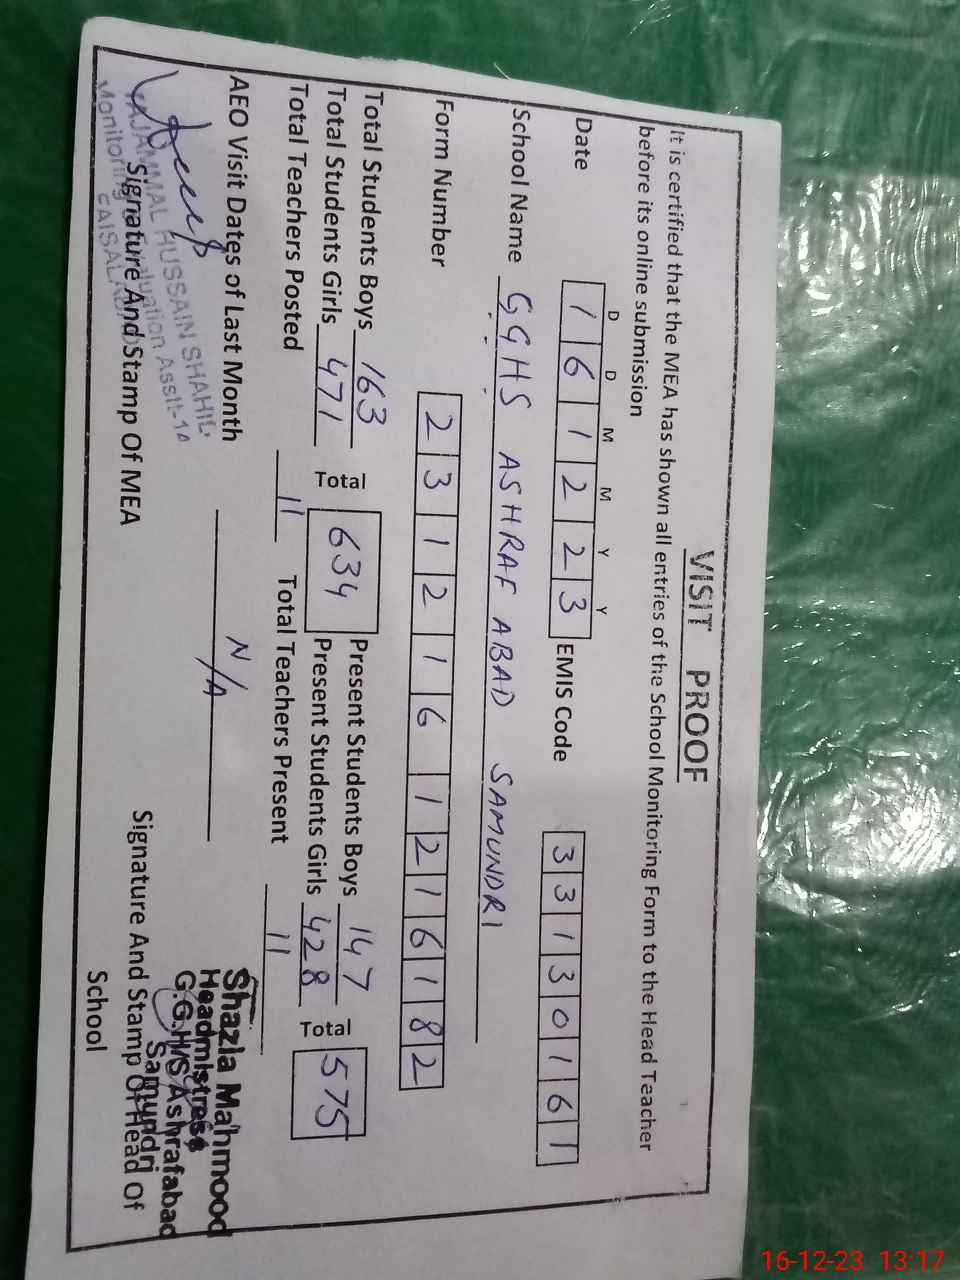 VISIT PROOF
It is certified that the MEA has shown all entries of the School Monitoring Form to the Head Teacher
before its online submission
D D M M Y Y
Date 1 6 1 2 2 3 EMIS Code 3 3 1 3 0 1 6 1
School Name GGHS ASHRAF ABAD SAMUNDRI
Form Number 2 3 1 2 1 6 1 2 1 6 1 8 2
Total Students Boys 163 Total 634 Present Students Boys 147 Total 575
Total Students Girls 471 Present Students Girls 428
Total Teachers Posted 11 Total Teachers Present 11
AEO Visit Dates of Last Month N/A
TAJAMMAL HUSSAIN SHAHID
Monitoring Evaluation Asstt-
FAISALABAD
Signature And Stamp Of MEA
Shazia Mahmood
Headmistress
G.G.H/S Ashrafabad
Samundri
Signature And Stamp Of Head of
School
16-12-23 13:17